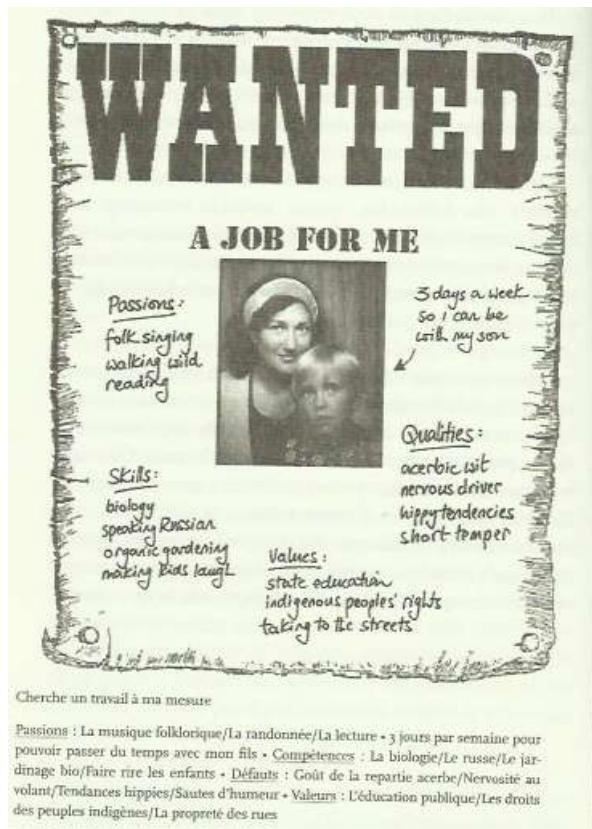 WANTED
A JOB FOR ME
Passions:
folk singing
walking wild
reading
3 days a week
so I can be
with my son
Qualities:
acerbic wit
nervous driver
hippy tendencies
short temper
Skills:
biology
speaking Russian
organic gardening
making kids laugh
Values:
state education
indigenous peoples' rights
taking to the streets
Cherche un travail à ma mesure
Passions : La musique folklorique/La randonnée/La lecture • 3 jours par semaine pour
pouvoir passer du temps avec mon fils • Compétences : La biologie/Le russe/Le jar-
dinage bio/Faire rire les enfants • Défauts : Goût de la repartie acerbe/Nervosité au
volant/Tendances hippies/Sautes d'humeur • Valeurs : L'éducation publique/Les droits
des peuples indigènes/La propreté des rues